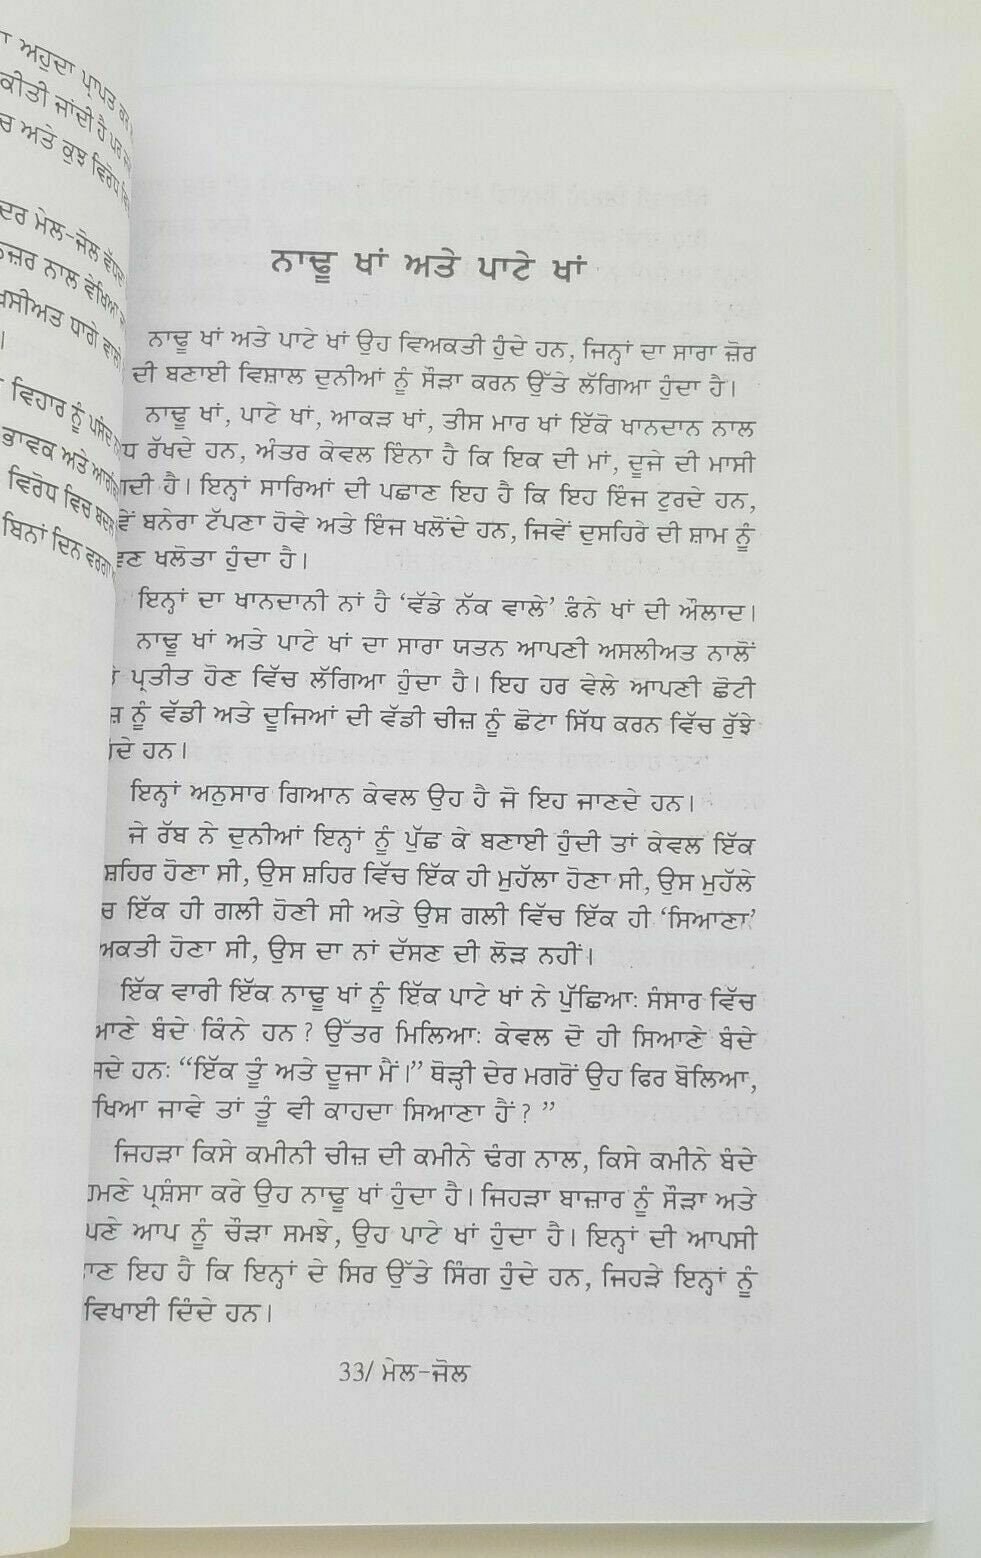 ਅਹੁਦਾ ਪ੍ਰਾਪਤ
ਕੀਤੀ ਜਾਂਦੀ ਹੈ ਪਰ
ਅਤੇ ਕੁਝ ਵਿਰੋਧ
ਮੇਲ-ਜੋਲ
ਨਾਲ ਵੇਖਿਆ
ਧਾਗੇ ਵਾਲੀ
।
ਵਿਹਾਰ ਨੂੰ ਪਸੰਦ
ਭਾਵਕ ਅਤੇ
ਵਿਰੋਧ ਵਿਚ
ਬਿਨਾਂ ਦਿਨ ਵਰਗਾ
ਨਾਢੂ ਖਾਂ ਅਤੇ ਪਾਟੇ ਖਾਂ
ਨਾਢੂ ਖਾਂ ਅਤੇ ਪਾਟੇ ਖਾਂ ਉਹ ਵਿਅਕਤੀ ਹੁੰਦੇ ਹਨ, ਜਿਨ੍ਹਾਂ ਦਾ ਸਾਰਾ ਜ਼ੋਰ
ਦੀ ਬਣਾਈ ਵਿਸ਼ਾਲ ਦੁਨੀਆਂ ਨੂੰ ਸੌੜਾ ਕਰਨ ਉੱਤੇ ਲੱਗਿਆ ਹੁੰਦਾ ਹੈ।
ਨਾਢੂ ਖਾਂ, ਪਾਟੇ ਖਾਂ, ਆਕੜ ਖਾਂ, ਤੀਸ ਮਾਰ ਖਾਂ ਇੱਕੋ ਖਾਨਦਾਨ ਨਾਲ
ਰੱਖਦੇ ਹਨ, ਅੰਤਰ ਕੇਵਲ ਇੰਨਾ ਹੈ ਕਿ ਇਕ ਦੀ ਮਾਂ, ਦੂਜੇ ਦੀ ਮਾਸੀ
ਹੈ। ਇਨ੍ਹਾਂ ਸਾਰਿਆਂ ਦੀ ਪਛਾਣ ਇਹ ਹੈ ਕਿ ਇਹ ਇੰਜ ਟੁਰਦੇ ਹਨ,
ਬਨੇਰਾ ਟੱਪਣਾ ਹੋਵੇ ਅਤੇ ਇੰਜ ਖਲੋਂਦੇ ਹਨ, ਜਿਵੇਂ ਦੁਸਹਿਰੇ ਦੀ ਸ਼ਾਮ ਨੂੰ
ਖਲੋਤਾ ਹੁੰਦਾ ਹੈ।
ਇਨ੍ਹਾਂ ਦਾ ਖਾਨਦਾਨੀ ਨਾਂ ਹੈ ‘ਵੱਡੇ ਨੱਕ ਵਾਲੇ’ ਫ਼ੰਨੇ ਖਾਂ ਦੀ ਔਲਾਦ।
ਨਾਢੂ ਖਾਂ ਅਤੇ ਪਾਟੇ ਖਾਂ ਦਾ ਸਾਰਾ ਯਤਨ ਆਪਣੀ ਅਸਲੀਅਤ ਨਾਲੋਂ
ਪ੍ਰਤੀਤ ਹੋਣ ਵਿੱਚ ਲੱਗਿਆ ਹੁੰਦਾ ਹੈ। ਇਹ ਹਰ ਵੇਲੇ ਆਪਣੀ ਛੋਟੀ
ਨੂੰ ਵੱਡੀ ਅਤੇ ਦੂਜਿਆਂ ਦੀ ਵੱਡੀ ਚੀਜ਼ ਨੂੰ ਛੋਟਾ ਸਿੱਧ ਕਰਨ ਵਿੱਚ ਰੁੱਝੇ
ਹਨ।
ਇਨ੍ਹਾਂ ਅਨੁਸਾਰ ਗਿਆਨ ਕੇਵਲ ਉਹ ਹੈ ਜੋ ਇਹ ਜਾਣਦੇ ਹਨ।
ਜੇ ਰੱਬ ਨੇ ਦੁਨੀਆਂ ਇਨ੍ਹਾਂ ਨੂੰ ਪੁੱਛ ਕੇ ਬਣਾਈ ਹੁੰਦੀ ਤਾਂ ਕੇਵਲ ਇੱਕ
ਸ਼ਹਿਰ ਹੋਣਾ ਸੀ, ਉਸ ਸ਼ਹਿਰ ਵਿੱਚ ਇੱਕ ਹੀ ਮੁਹੱਲਾ ਹੋਣਾ ਸੀ, ਉਸ ਮੁਹੱਲੇ
ਇੱਕ ਹੀ ਗਲੀ ਹੋਣੀ ਸੀ ਅਤੇ ਉਸ ਗਲੀ ਵਿੱਚ ਇੱਕ ਹੀ ‘ਸਿਆਣਾ’
ਹੋਣਾ ਸੀ, ਉਸ ਦਾ ਨਾਂ ਦੱਸਣ ਦੀ ਲੋੜ ਨਹੀਂ।
ਇੱਕ ਵਾਰੀ ਇੱਕ ਨਾਢੂ ਖਾਂ ਨੂੰ ਇੱਕ ਪਾਟੇ ਖਾਂ ਨੇ ਪੁੱਛਿਆ: ਸੰਸਾਰ ਵਿੱਚ
ਬੰਦੇ ਕਿੰਨੇ ਹਨ? ਉੱਤਰ ਮਿਲਿਆ: ਕੇਵਲ ਦੋ ਹੀ ਸਿਆਣੇ ਬੰਦੇ
ਹਨ: “ਇੱਕ ਤੂੰ ਅਤੇ ਦੂਜਾ ਮੈਂ।” ਥੋੜ੍ਹੀ ਦੇਰ ਮਗਰੋਂ ਉਹ ਫਿਰ ਬੋਲਿਆ,
ਜਾਵੇ ਤਾਂ ਤੂੰ ਵੀ ਕਾਹਦਾ ਸਿਆਣਾ ਹੈਂ? ”
ਜਿਹੜਾ ਕਿਸੇ ਕਮੀਨੀ ਚੀਜ਼ ਦੀ ਕਮੀਨੇ ਢੰਗ ਨਾਲ, ਕਿਸੇ ਕਮੀਨੇ ਬੰਦੇ
ਪ੍ਰਸ਼ੰਸਾ ਕਰੇ ਉਹ ਨਾਢੂ ਖਾਂ ਹੁੰਦਾ ਹੈ। ਜਿਹੜਾ ਬਾਜ਼ਾਰ ਨੂੰ ਸੌੜਾ ਅਤੇ
ਆਪ ਨੂੰ ਚੌੜਾ ਸਮਝੇ, ਉਹ ਪਾਟੇ ਖਾਂ ਹੁੰਦਾ ਹੈ। ਇਨ੍ਹਾਂ ਦੀ ਆਪਸੀ
ਇਹ ਹੈ ਕਿ ਇਨ੍ਹਾਂ ਦੇ ਸਿਰ ਉੱਤੇ ਸਿੰਗ ਹੁੰਦੇ ਹਨ, ਜਿਹੜੇ ਇਨ੍ਹਾਂ ਨੂੰ
ਵਿਖਾਈ ਦਿੰਦੇ ਹਨ।
33/ ਮੇਲ-ਜੋਲ